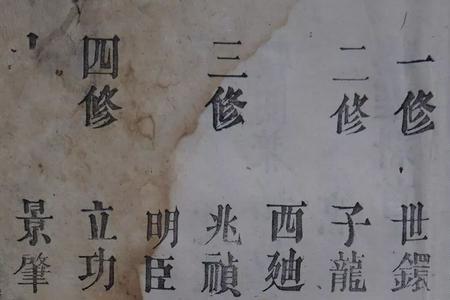 一修 世鐶
二修 子龍
西廸
三修 兆禎
明臣
四修 立功
景肇